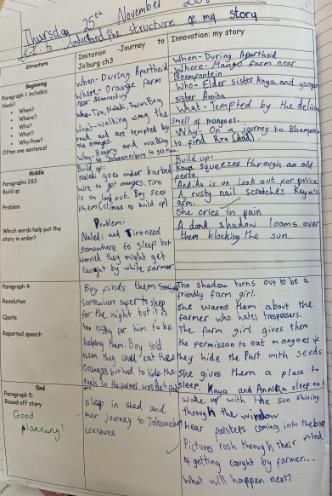 Thursday 25th November
LO to understand the structure of my story
Structure
Imitation Journey to Joburg ch3
Innovation: my story
Beginning
Paragraph 1 includes:
Hook!
• When?
• Where?
• Who?
• What?
• Why/how?
Often one sentence!
When- During Apartheid
Where- Orange farm
near
Who- Tiro, Naledi, Farm Boy
What- walking along the
road and are tempted by
the oranges
Why- Hungry and
to Johannesburg to get Mma
When- During Apartheid
Where- Mango farm near
Bloemfontein
Who- Elder sister Kaya and younger
sister
What- Tempted by the delicious
smell of mangoes.
Why- On a journey to Bloemfontein
to find
Middle
Paragraph 2&3:
Build up
Problem
Which words help put the
story in order?
Build up:
Naledi goes under barbed
wire to get mangos. Tiro
is on look out. Boy sees
them (climax of build up)
Problem:
Naledi and Tiro need
somewhere to sleep but
worried they might get
caught by white farmer
Build up:
Kaya squeezes through an old
fence
is on look out for police
A rusty nail scratches Kaya's
arm.
She cries in pain
A dark shadow looms over
them blocking the sun.
Paragraph 4:
Resolution
Quote
Reported speech
Boy finds them
somewhere super to sleep
for the night but it is
too risky for him to be
helping them. Boy told
them they could eat the
Oranges but had to hide the
peels so the farmer wouldn't
The shadow turns out to be a
friendly farm girl.
She warns them about the
farmer who hates trespassers.
The farm girl gives them
the permission to eat mangoes if
they hide the Part with seeds
She gives them a place to
sleep. Kaya and sleep on
End
Paragraph 5:
Round off story
Good
planning!
sleep in shed and
their journey to Johannesburg
continues
wake up with the sun shining
through the window
hear footsteps coming into the
Pictures rush through their mind
of getting caught by farmer...
What will happen next?